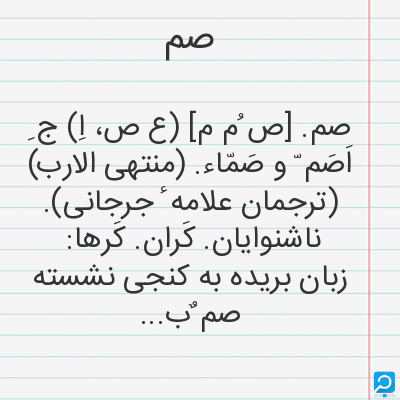 صم
صم. [ص ُم م] (ع ص، اِ) ج ِ
اَصَم ّ و صَمّاء. (منتهی الارب)
(ترجمان علامه ٔ جرجانی).
ناشنوایان. کَران. کَرها:
زبان بریده به کنجی نشسته
صم ٌب...